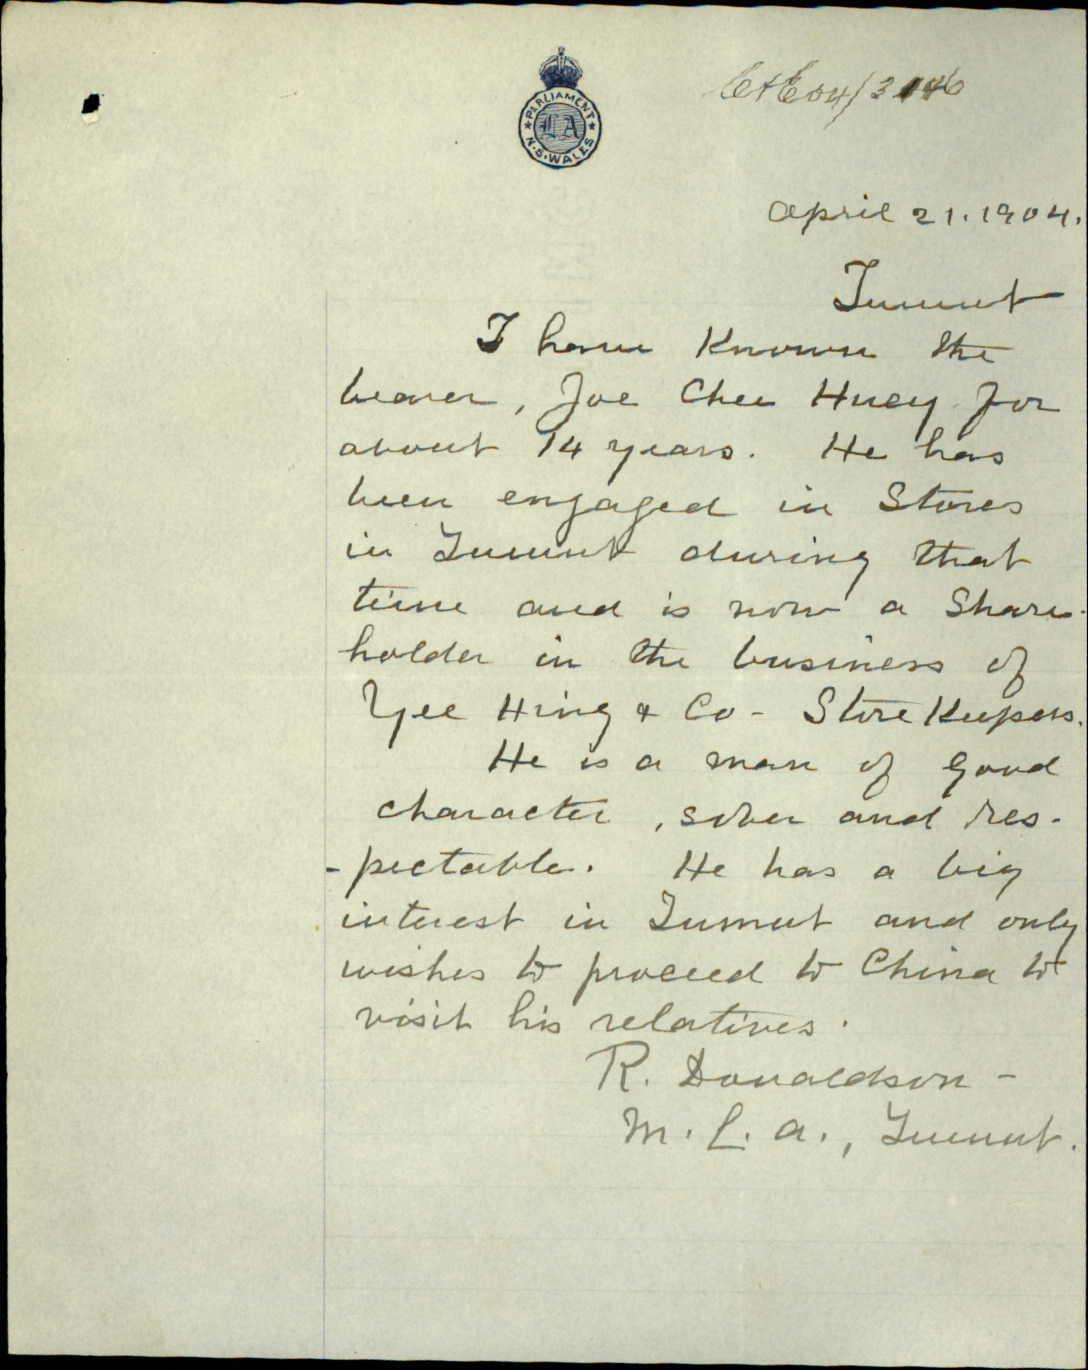 PARLIAMENT
LA
N.S.WALES
C+E04/3146
April 21. 1904.
Tumut
I have known the
bearer, Joe Chee Huey for
about 14 years. He has
been engaged in Stores
in Tumut during that
time and is now a Share-
holder in the business of
Yee Hing & Co - Store Keepers.
He is a man of good
character, sober and res-
-pectable. He has a big
interest in Tumut and only
wishes to proceed to China to
visit his relatives.
R. Donaldson -
M. L. A., Tumut.